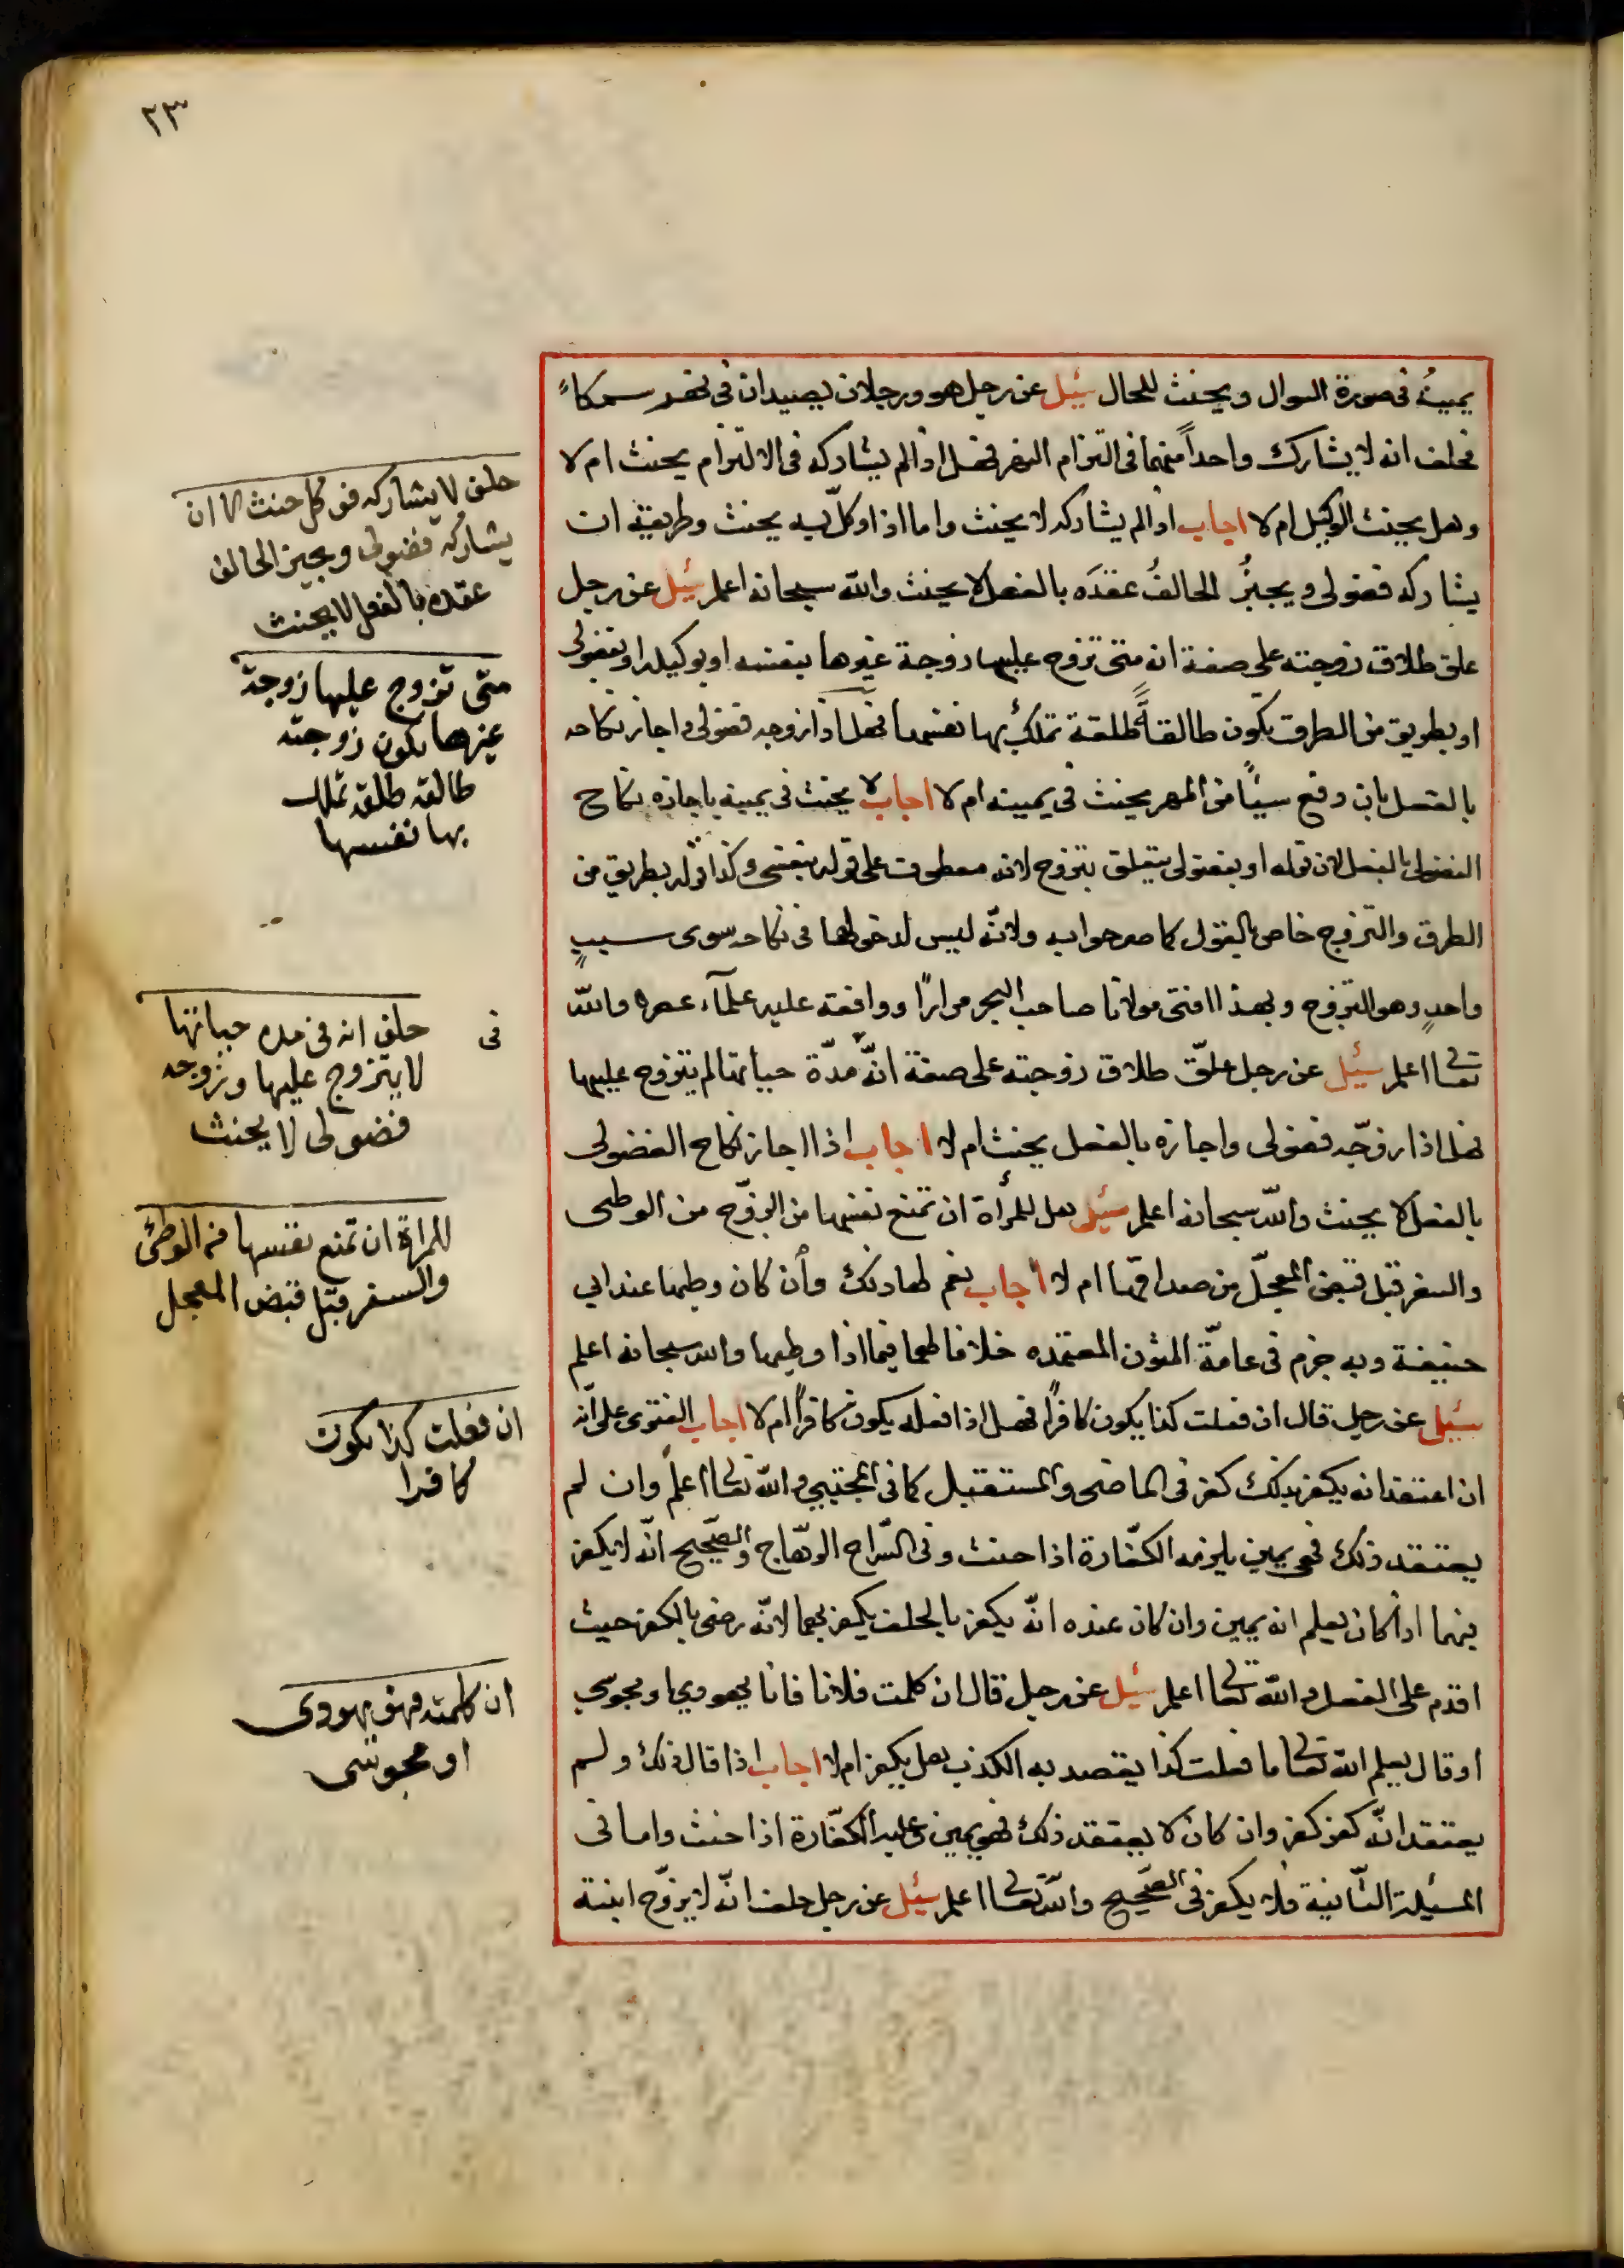 ٢٣
يمينه فى صورة السوال ويحنث للحال سئل عن رجل هو ورجلان يصيدان فى نهر سمكاً
فحلف انه لا يشارك واحداً منهما فى التزام النهر فهل اذا لم يشاركه فى الالتزام يحنث ام لا
وهل يحنث الوكيل ام لا اجاب اذا لم يشاركه لا يحنث واما اذا وكل به يحنث وطريقته ان
يشاركه فضولى ويجيزُ الحالفُ عقدَه بالفعل لا يحنث والله سبحانه اعلم سئل عن رجل
علق طلاق زوجته على صفة انه متى تزوج عليها زوجة غيرها بنفسه او بوكيله او بفضولى
او بطريق من الطرق تكون طالقاً طلقة تملك بها نفسها فهل اذا زوجه فضولى واجاز نكاحه
بالفعل بان دفع شيئاً من المهر يحنث فى يمينه ام لا اجاب لا يحنث فى يمينه باجازه نكاح
الفضولى بالفعل لان قوله او بفضولى يتعلق بتزوج لانه معطوف على قوله بنفسى وكذا قوله بطريق من
الطرق والتزوج خاص بالقول كما صرحوا به ولانّه ليس لدخولها فى نكاحه سوى سببٍ
واحدٍ وهو التزوج وبهذا افتى مولانا صاحب البحر مراراً ووافقه عليه علمآء عصره والله
تعالى اعلم سئل عن رجل علّق طلاق زوجته على صفة انّه مدّة حياتها لم يتزوج عليها
فهل اذا زوّجه فضولى واجازه بالفعل يحنث ام لا اجاب اذا اجاز نكاح الفضولى
بالفعل لا يحنث والله سبحانه اعلم سئل هل للمرأة ان تمنع نفسها من الزوّج من الوطى
والسفر قبل قبض المعجّل من صداقها ام لا اجاب نعم لها ذلك وأن كان وطيها عند ابي
حنيفة وبه جزم فى عامّة المتون المعتمده خلافا لهما فيما اذا وطيها والله سبحانه اعلم
سئل عن رجل قال ان فعلت كذا يكون كافراً فهل اذا فعله يكون كافراً ام لا اجاب الفتوى على انّه
ان اعتقد انه يكفر بذلك كفر فى الماضى والمستقبل كما فى المجتبي والله تعالى اعلم وان لم
يعتقد ذلك فهو يمين يلزمه الكفّارة اذا حنث وفى السّراج الوهّاج والصّحيح انّه لا يكفر
فيهما اذا كان يعلم انه يمين وان كان عنده انّه يكفر بالحلف يكفر بهما لانّه رضى بالكفر حيث
اقدم على الفعل والله تعالى اعلم سئل عن رجل قال ان كلمت فلانا فانا يهودي او مجوسي
او قال يعلم الله تعالى ما فعلت كذا يقصد به الكذب هل يكفر ام لا اجاب اذا قال ذلك ولم
يعتقد انّه كفر كفر وان كان لا يعتقد ذلك فهو يمين وعليه الكفّارة اذا حنث واما فى
المسئلة الثّانية فلا يكفر فى الصّحيح والله تعالى اعلم سئل عن رجل حلف انّه لا يزوّج ابنته
حلف لا يشاركه فوكل حنث الا ان
يشاركه فضولى ويجيز الحالف
عقده بالفعل لا يحنث
متى تزوج عليها زوجة
غيرها تكون زوجته
طالقه طلقه تملك
بها نفسها
فى
حلف انه فى مده حياتها
لا يتزوج عليها وزوجه
فضولى لا يحنث
للمراة ان تمنع نفسها من الوطئ
والسفر قبل قبض المعجل
ان فعلت كذا يكون
كافرا
ان كلمته فهو يهودى
او مجوسى